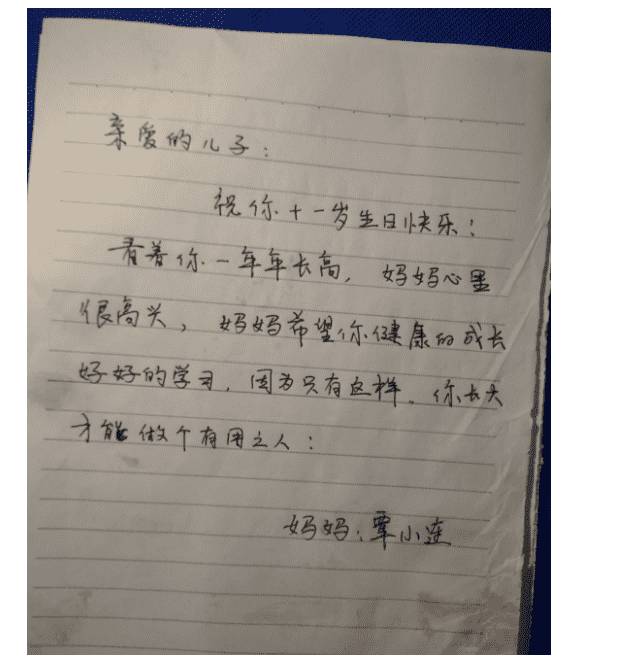 亲爱的儿子：
祝你十一岁生日快乐！
看着你一年年长高，妈妈心里
很高兴，妈妈希望你健康的成长
好好的学习，因为只有这样。你长大
才能做个有用之人：
妈妈：覃小莲